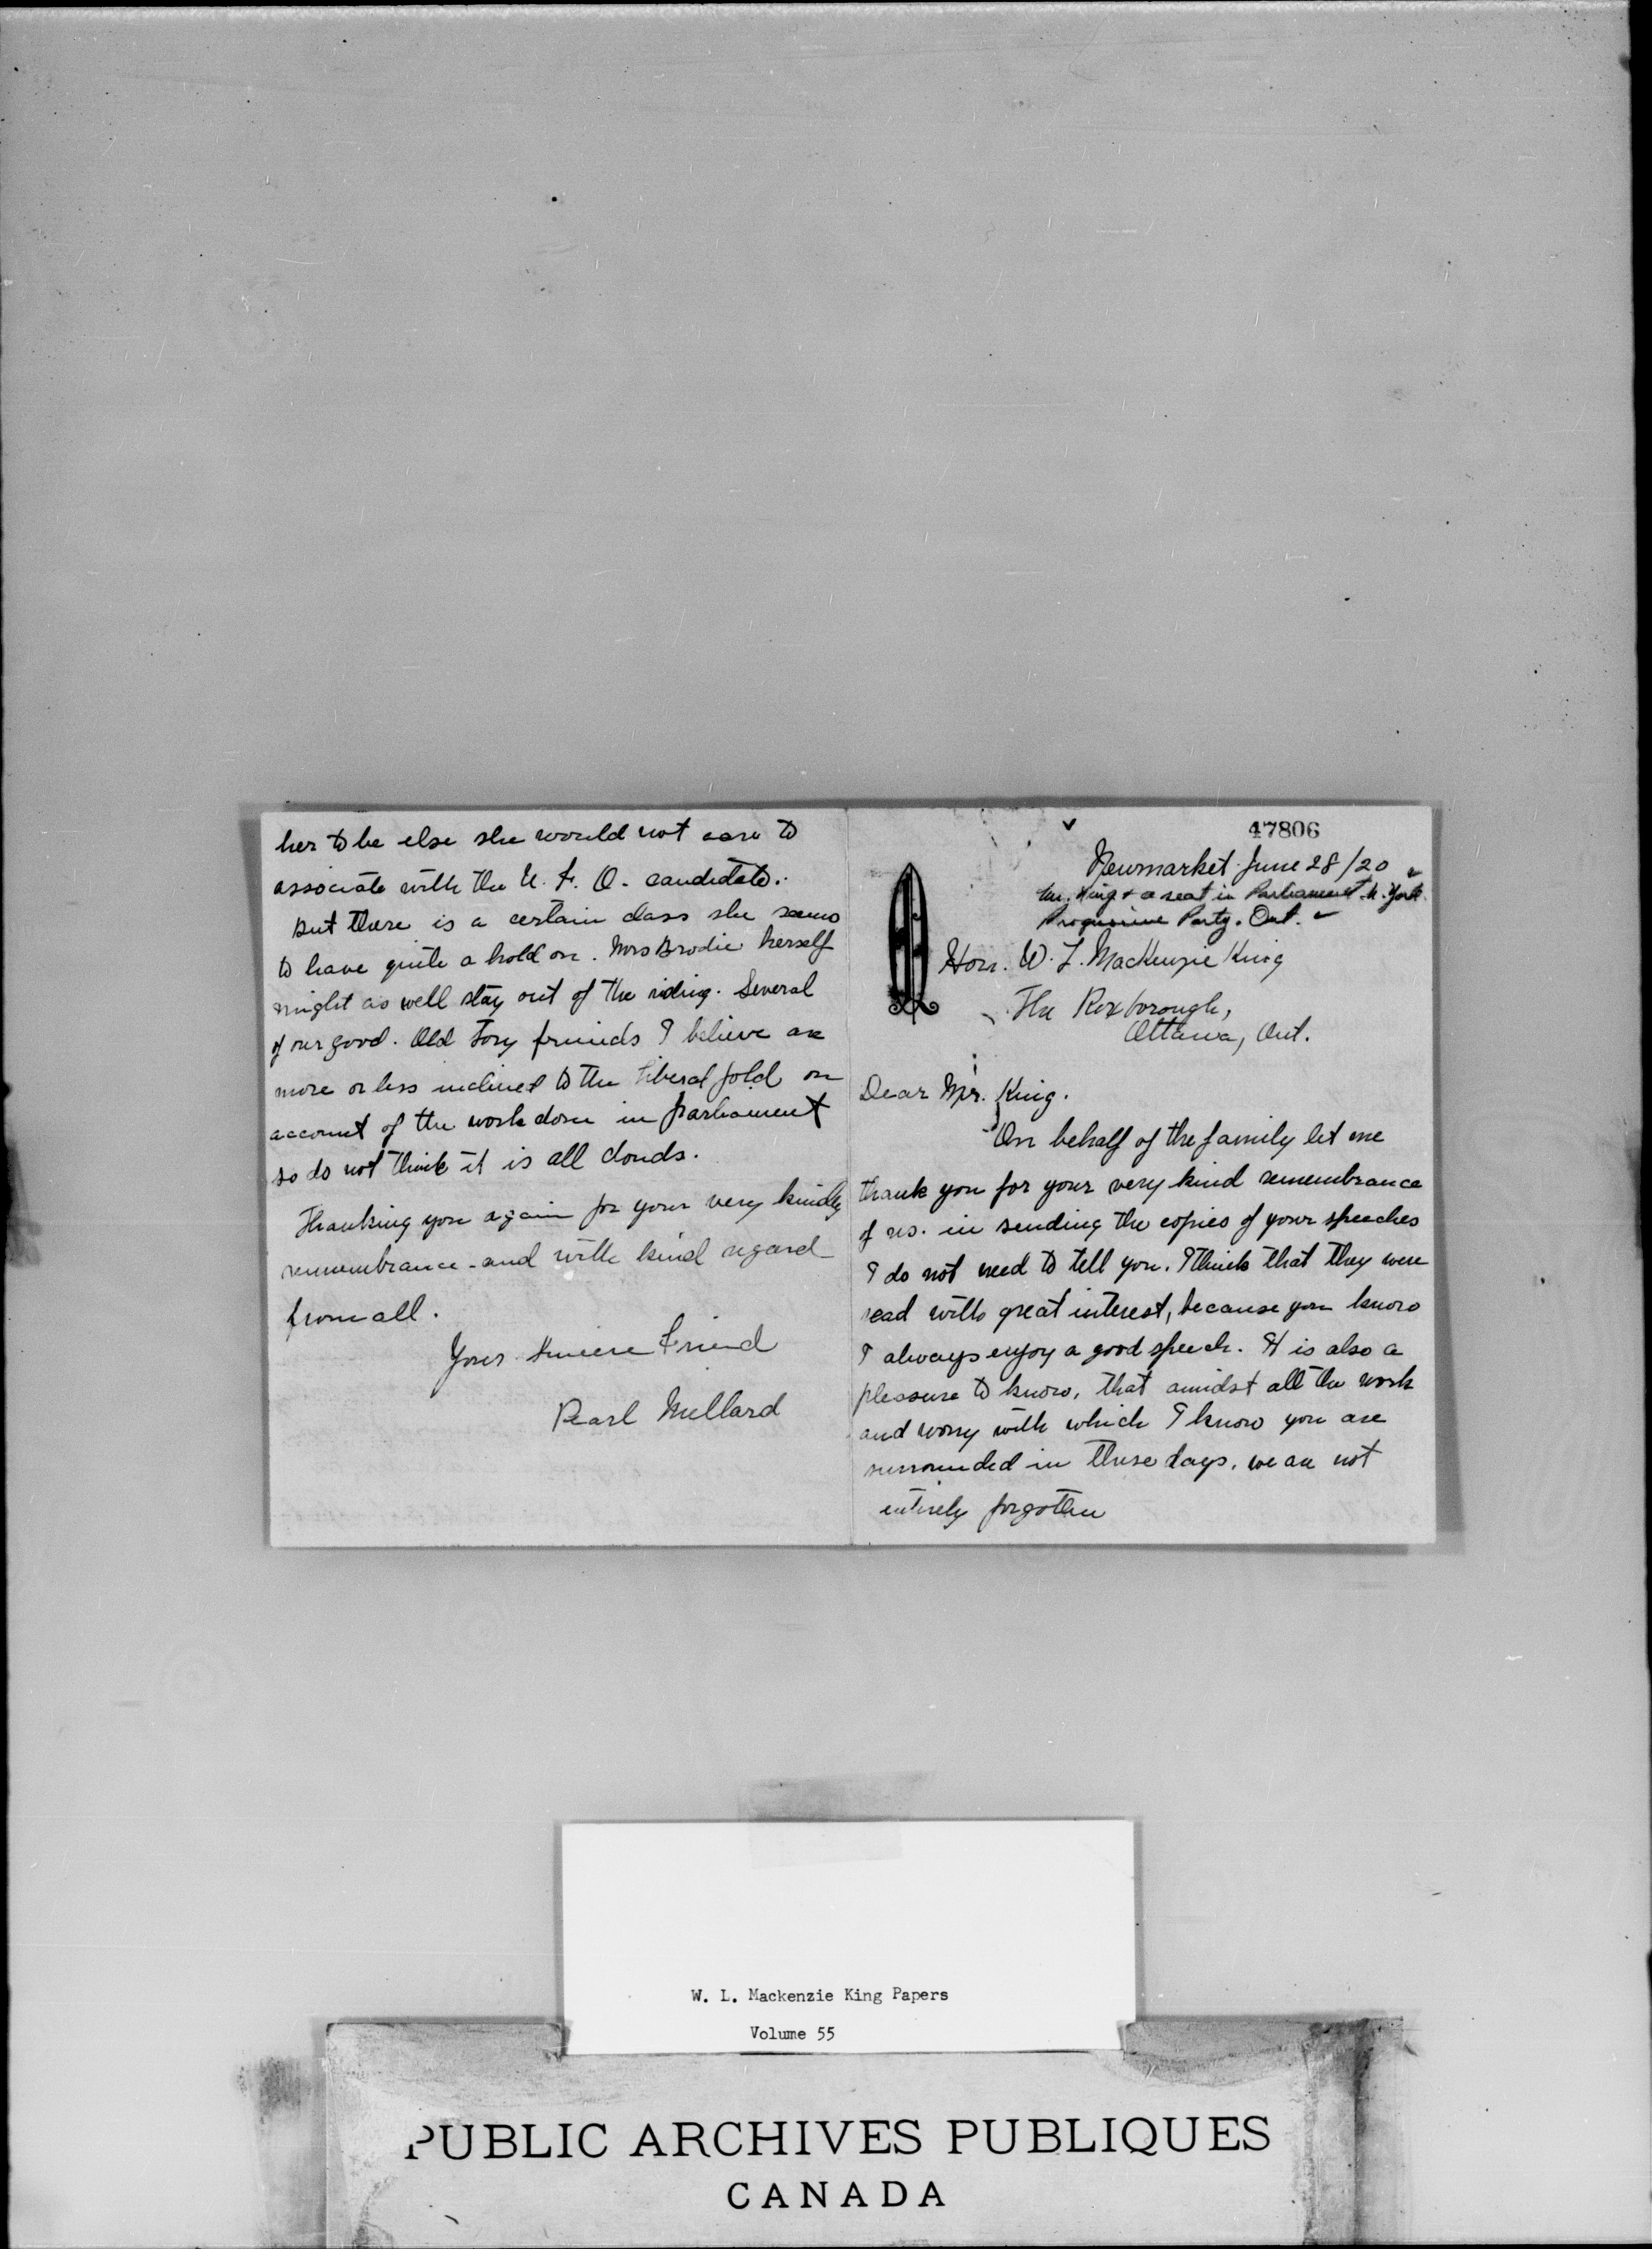 47806
Newmarket June 28/20
Mr. King + a seat in Parliament N. York
Progressive Party. Ont.
Hon. W. L. MacKenzie King
The Roxborough,
Ottawa, Ont.
Dear Mr. King.
On behalf of the family let me
thank you for your very kind remembrance
of us. in sending the copies of your speeches
I do not need to tell you. I think that they were
read with great interest, because you know
I always enjoy a good speech. It is also a
pleasure to know, that amidst all the work
and worry with which I know you are
surrounded in these days, we are not
entirely forgotten
her to be else she would not care to
associate with the U. F. O. candidate.
But there is a certain class she seems
to have quite a hold on. Mrs Brodie herself
might as well stay out of the riding. Several
of our good. Old Tory friends I believe are
more or less inclined to the Liberal fold on
account of the work done in parliament
so do not think it is all clouds.
Thanking you again for your very kindly
remembrance - and with kind regard
from all.
Your sincere friend
Pearl Millard
W. L. Mackenzie King Papers
Volume 55
PUBLIC ARCHIVES PUBLIQUES
CANADA